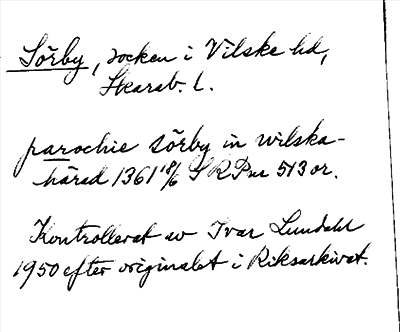 Sörby, socken i Vilske hd,
Skarab. l.
parochie sörby in wilska-
härad 1361 18/6 SRPnr 513 or.
Kontrollerat av Ivar Lundahl
1950 efter originalet i Riksarkivet.